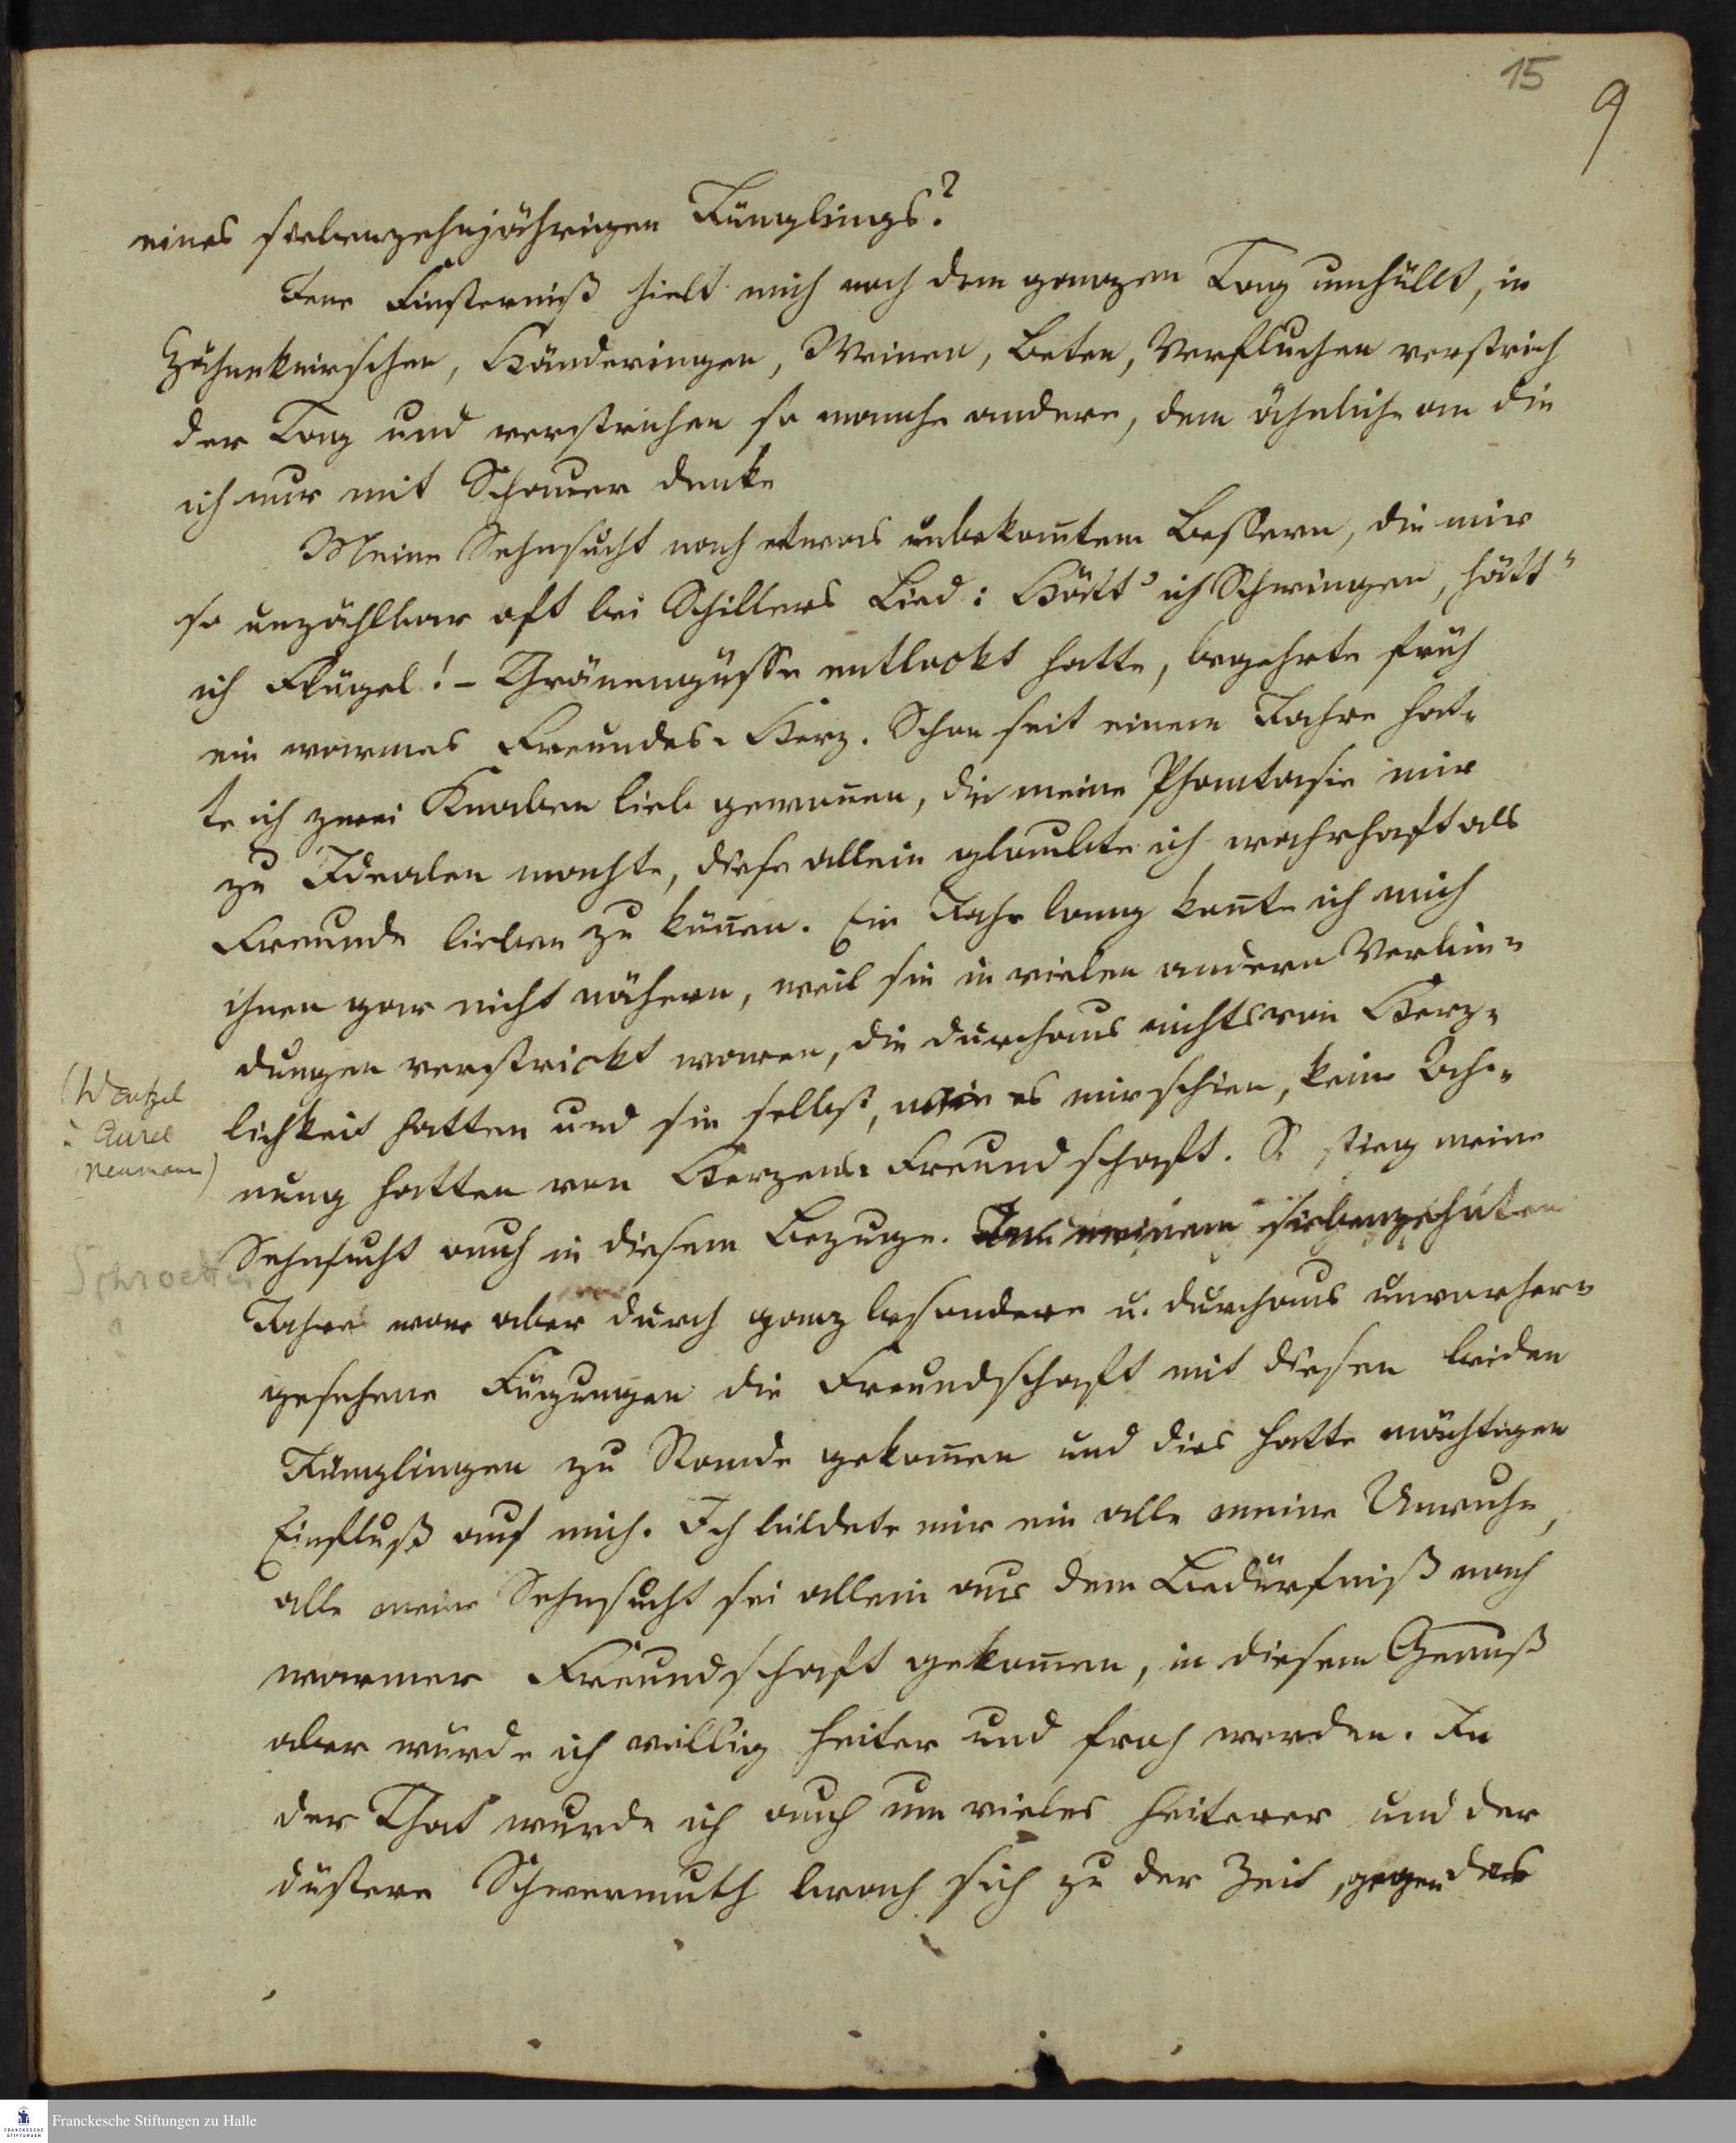 15
9
eines siebenzehnjährigen Jünglings?
Jene Finsterniß hielt mich noch den ganzen Tag umhüllt, in
Zähneknirschen, Händeringen, Weinen, Beten, Verfluchen verstrich
der Tag und verstrichen so manche andere, dem ähnliche an die
ich nur mit Schauer denke
Meine Sehnsucht nach etwas unbekan̅tem Bessern, die mir
so unzählbar oft bei Schillers Lied: Hätt' ich Schwingen, hätt'
ich Flügel! – Thränengüsse entlockt hatte, begehrte früh
ein warmes Freundes-Herz. Schon seit einem Jahre hat-
te ich zwei Knaben lieb gewon̅en, die meine Phantasie mir
zu Idealen machte, diese allein glaubte ich wahrhaft als
Freunde lieben zu kön̅en. Ein Jahr lang kon̅te ich mich
ihnen gar nicht nähern, weil sie in vielen andern Verbin-
dungen verstrickt waren, die durchaus nichts von Herz-
lichkeit hatten und sie selbst, wie es mir schien, keine Ah-
nung hatten von Herzens-Freundschaft. So stieg meine
Sehnsucht auch in diesem Bezuge. In meinem siebenzehnten
Jahre war aber durch ganz besondere u. durchaus unvorher-
gesehene Fügungen die Freundschaft mit diesen beiden
Jünglingen zu Stande gekom̅en und dies hatte mächtigen
Einfluß auf mich. Ich bildete mir ein alle meine Unruhe,
alle meine Sehnsucht sei allein aus dem Bedürfniß nach
warmer Freundschaft gekom̅en, in diesem Genuß
aber würde ich völlig heiter und froh werden. In
der That wurde ich auch um vieles heiterer und der
düstere Schwermuth brach sich zu der Zeit, gegen das
(Wantzel
Aurel
Neumann)
Schroetter
Franckesche Stiftungen zu Halle
FRANCKESCHE
STIFTUNGEN